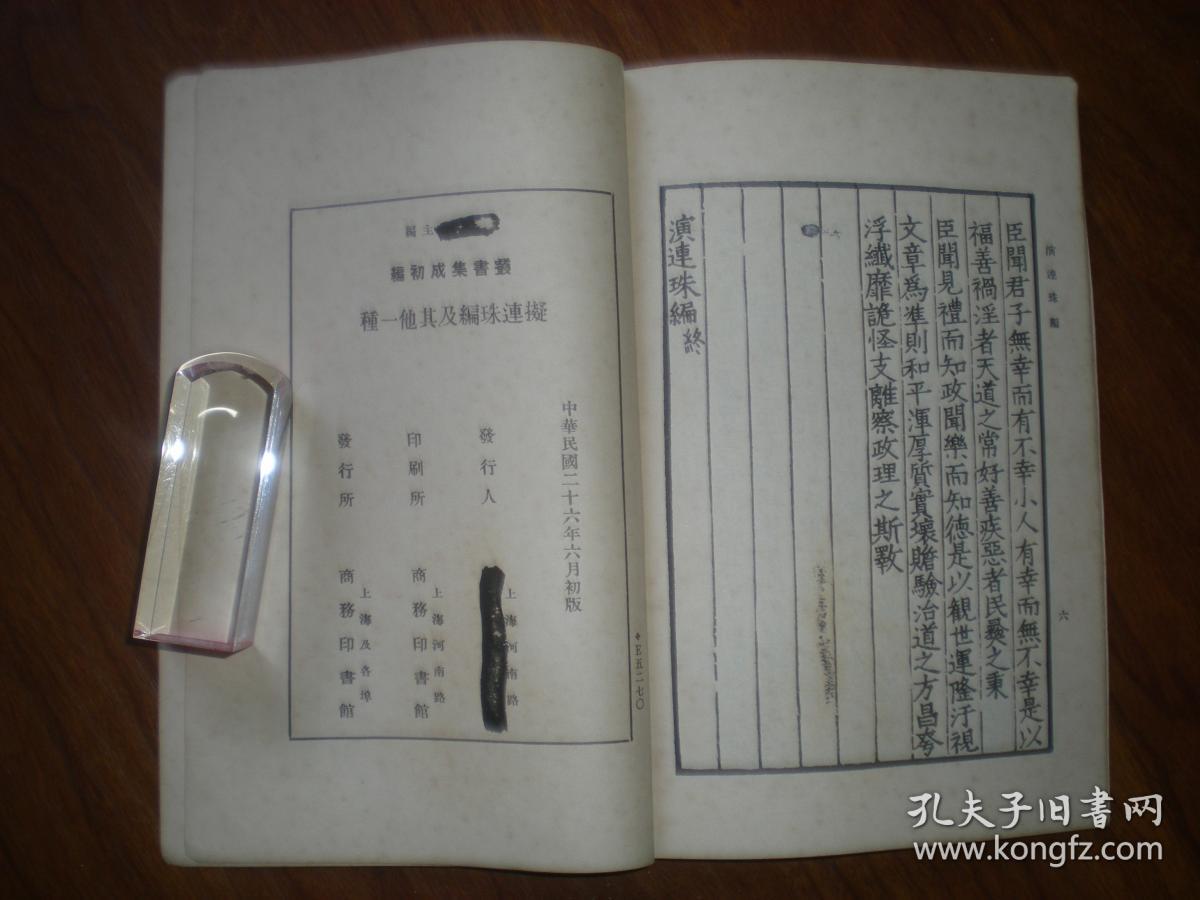 演連珠編
六
臣聞君子無幸而有不幸小人有幸而無不幸是以
福善禍淫者天道之常好善疾惡者民彝之秉
臣聞見禮而知政聞樂而知德是以觀世運隆汙視
文章爲準則和平渾厚質實瓌贍驗治道之方昌夸
浮纖靡詭怪支離察政理之斯斁
演連珠編終
主編
叢書集成初編
擬連珠編及其他一種
中華民國二十六年六月初版
發行人
上海河南路
印刷所
上海河南路
商務印書館
發行所
上海及各埠
商務印書館
E五二七〇
孔夫子旧书网
www.kongfz.com